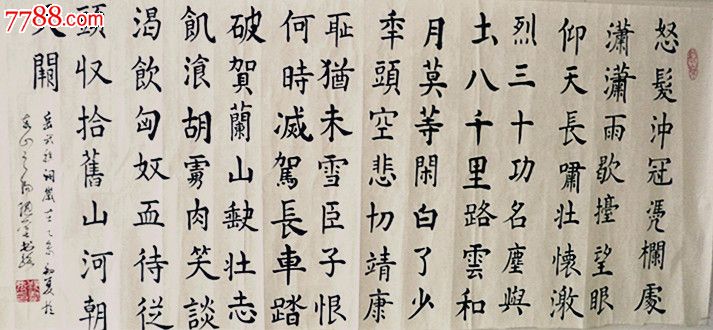 怒髮沖冠凴欄處
瀟瀟雨歇擡望眼
仰天長嘯壯懷激
烈三十功名塵與
土八千里路雲和
月莫等閑白了少
秊頭空悲切靖康
耻猶未雪臣子恨
何時滅駕長車踏
破賀蘭山缺壯志
飢湌胡虜肉笑談
渴飲匈奴血待從
頭收拾舊山河朝
天闕
7788.com